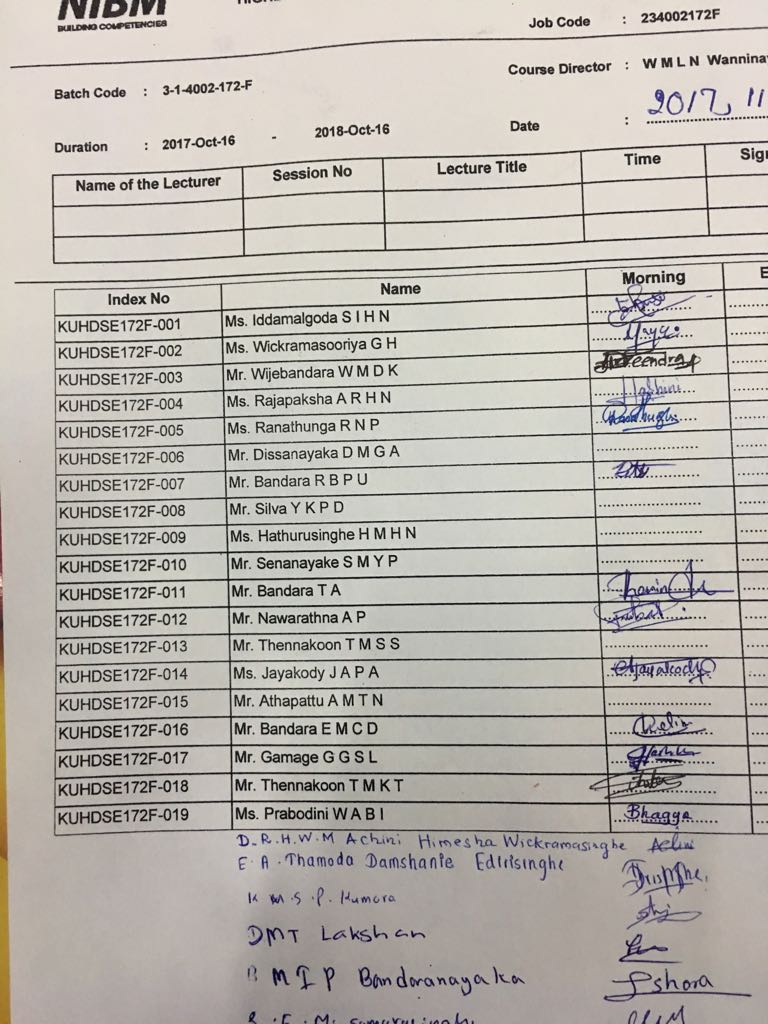 NIBM
BUILDING COMPETENCIES
Job Code : 234002172F
Batch Code : 3-1-4002-172-F
Course Director : W M L N Wannina
Duration : 2017-Oct-16 - 2018-Oct-16
Date : 2017, 11
Name of the Lecturer Session No Lecture Title Time Sig
Index No Name Morning E
KUHDSE172F-001 Ms. Iddamalgoda S I H N
KUHDSE172F-002 Ms. Wickramasooriya G H
KUHDSE172F-003 Mr. Wijebandara W M D K
KUHDSE172F-004 Ms. Rajapaksha A R H N Hashini
KUHDSE172F-005 Ms. Ranathunga R N P
KUHDSE172F-006 Mr. Dissanayaka D M G A
KUHDSE172F-007 Mr. Bandara R B P U
KUHDSE172F-008 Mr. Silva Y K P D
KUHDSE172F-009 Ms. Hathurusinghe H M H N
KUHDSE172F-010 Mr. Senanayake S M Y P
KUHDSE172F-011 Mr. Bandara T A
KUHDSE172F-012 Mr. Nawarathna A P
KUHDSE172F-013 Mr. Thennakoon T M S S
KUHDSE172F-014 Ms. Jayakody J A P A
KUHDSE172F-015 Mr. Athapattu A M T N
KUHDSE172F-016 Mr. Bandara E M C D
KUHDSE172F-017 Mr. Gamage G G S L
KUHDSE172F-018 Mr. Thennakoon T M K T
KUHDSE172F-019 Ms. Prabodini W A B I Bhagya
D.R.H.W.M Achini Himesha Wickramasinghe Achini
E. A. Thamoda Damshanie Edirisinghe
K M.S.P. Kumara
DMT Lakshan
B M I P Bandaranayaka Ishara